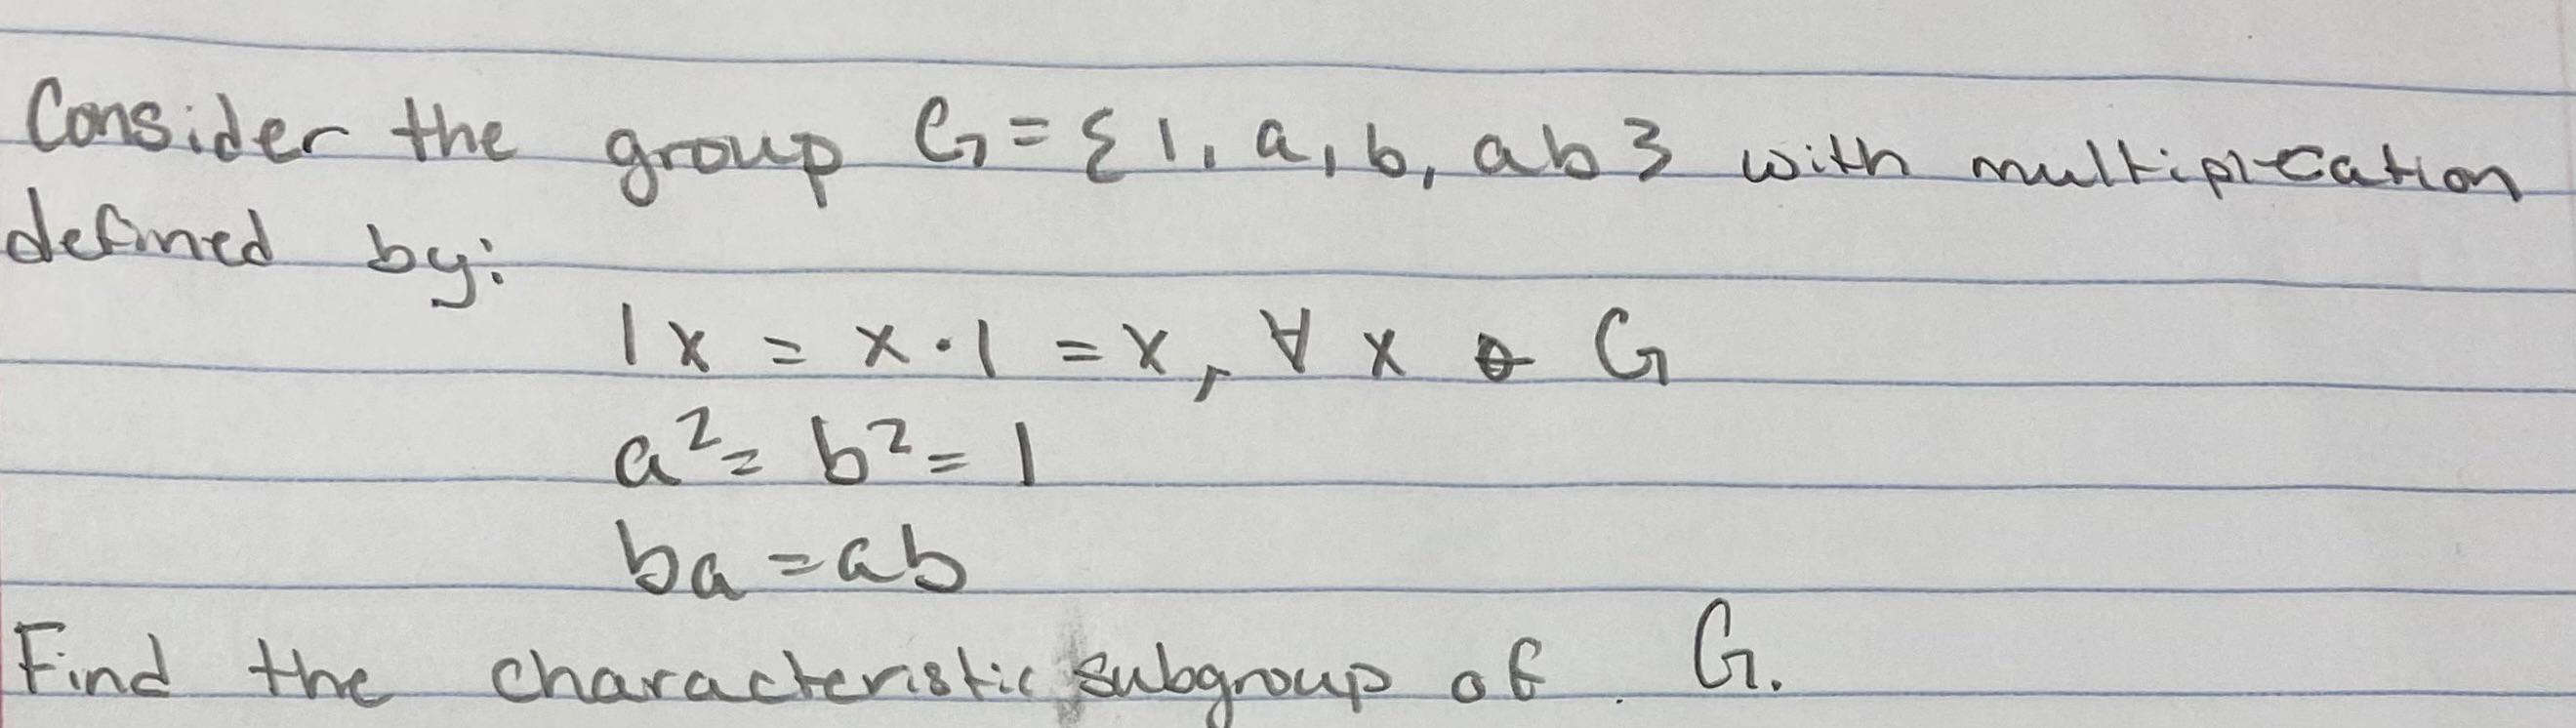 Consider the group G = { 1, a, b, ab } with multiplication
defined by:
1x = x·1 = x, ∀ x ∈ G
a² = b² = 1
ba = ab
Find the characteristic subgroup of G.